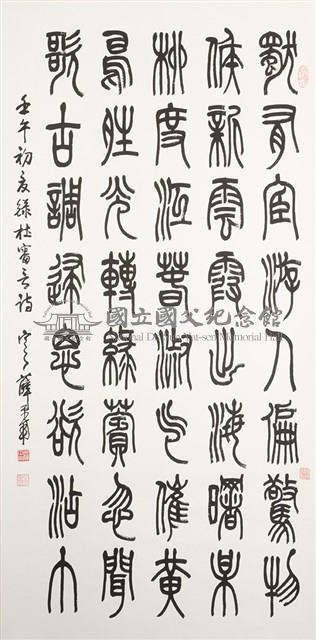 獨有宦游人偏驚物
候新雲霞出海曙梅
柳度江春淑气催黃
鳥晴光轉綠蘋忽聞
歌古調歸思欲沾巾
壬午初夏錄杜審言詩 薛平南
國立國父紀念館
National Dr. Sun Yat-sen Memorial Hall